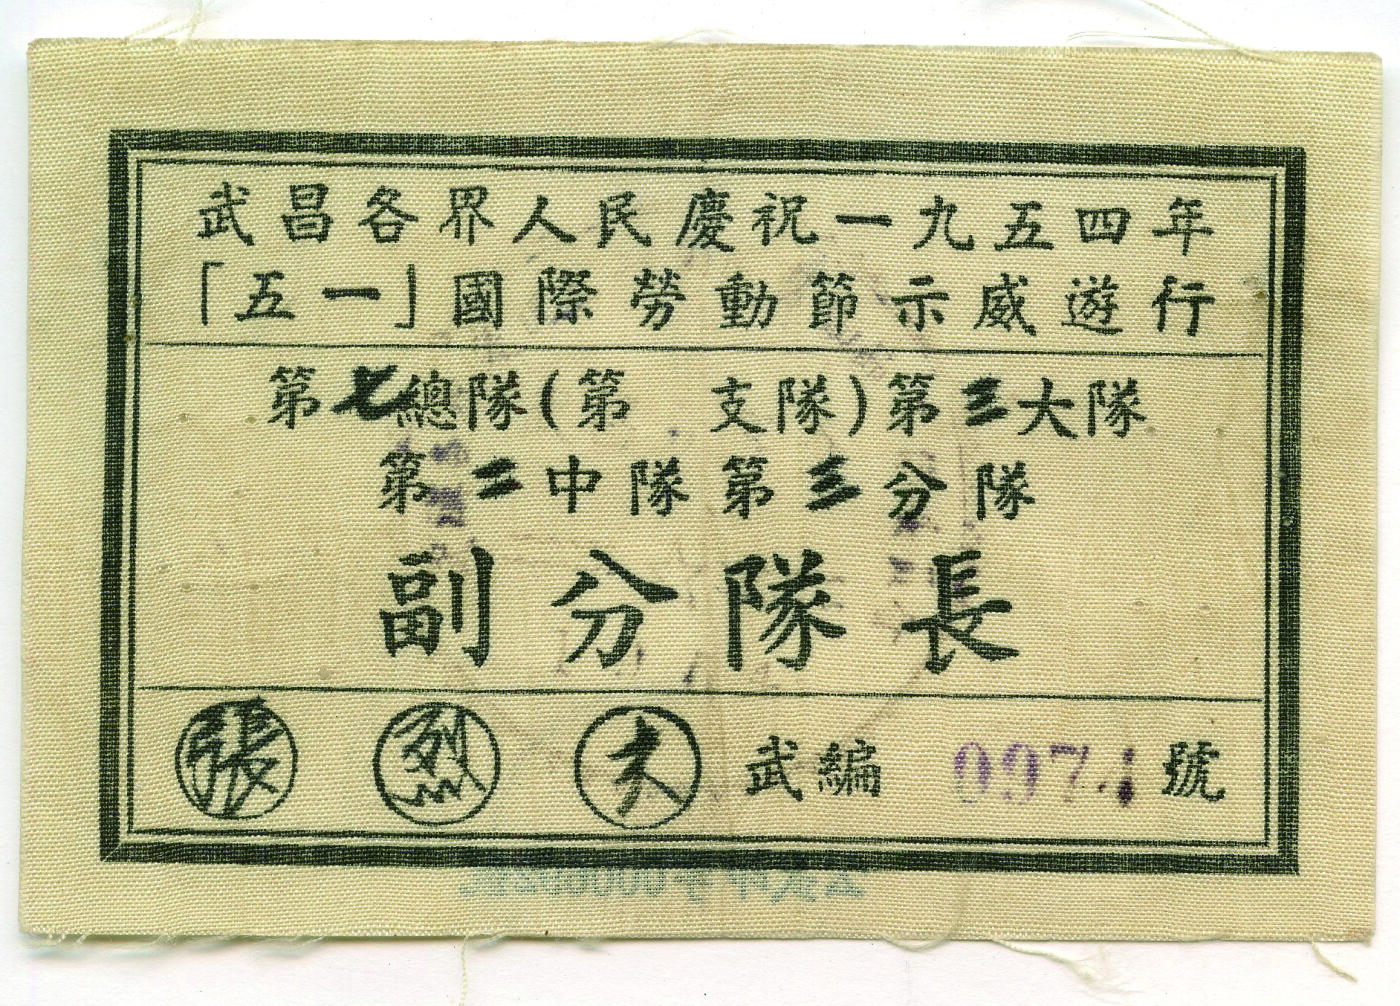 武昌各界人民慶祝一九五四年
「五一」國際勞動節示威遊行
第七總隊(第　支隊)第三大隊
第二中隊第三分隊
副分隊長
張 烈 夫 武編 0974 號